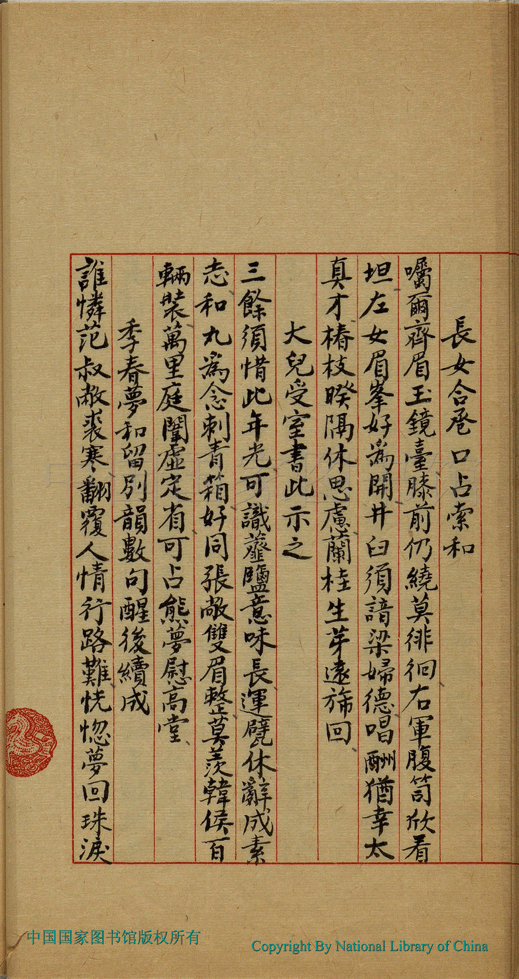 長女合巹口占索和
囑爾齊眉玉鏡臺膝前仍繞莫徘徊右軍腹笥欣看
坦左女眉峯好為開井臼須諳梁婦德唱酬猶幸太
真才椿枝暌隔休思慮蘭桂生芽遠旆回
大兒受室書此示之
三餘須惜此年光可識虀鹽意味長運甓休辭成素
志和丸為念刺青箱好同張敞雙眉整莫羨韓侯百
輛裝萬里庭闈虛定省可占熊夢慰高堂
季春夢和留別韻數句醒後續成
誰憐范叔敝裘寒翻覆人情行路難恍惚夢回珠淚
中国国家图书馆版权所有
Copyright By National Library of China